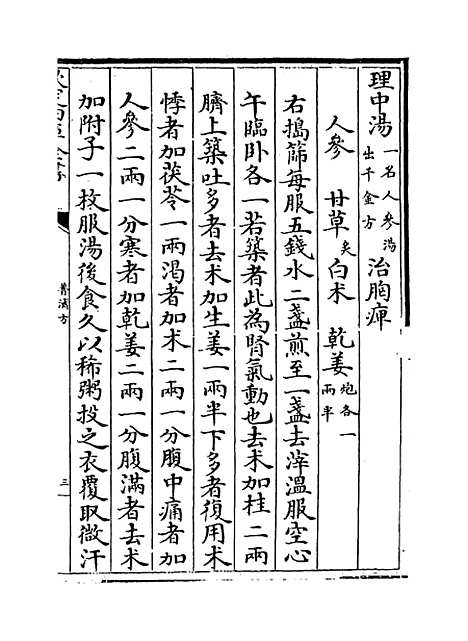 理中湯一名人參湯出千金方治胸痺
人參 甘草炙 白朮 乾姜炮各一兩半
右搗篩每服五錢水二盞煎至一盞去滓溫服空心
午臨卧各一若築者此為腎氣動也去朮加桂二兩
臍上築吐多者去朮加生姜一兩半下多者復用朮
悸者加茯苓一兩渴者加朮二兩一分腹中痛者加
人參二兩一分寒者加乾姜二兩一分腹滿者去朮
加附子一枚服湯後食久以稀粥投之衣覆取微汗
普濟方
三